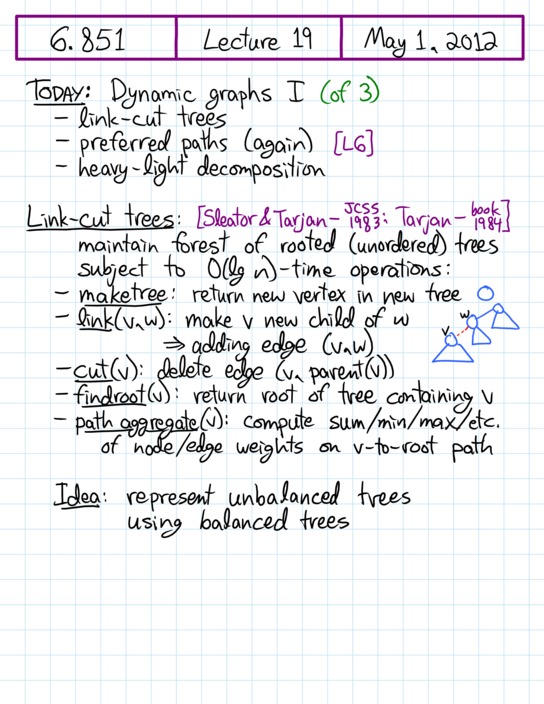 6.851 Lecture 19 May 1, 2012
TODAY: Dynamic graphs I (of 3)
- link-cut trees
- preferred paths (again) [L6]
- heavy-light decomposition
Link-cut trees: [Sleator & Tarjan - JCSS 1983; Tarjan - book 1984]
maintain forest of rooted (unordered) trees
subject to O(lg n)-time operations:
- maketree: return new vertex in new tree
- link(v,w): make v new child of w
⇒ adding edge (v,w)
w
v
- cut(v): delete edge (v, parent(v))
- findroot(v): return root of tree containing v
- path aggregate(v): compute sum/min/max/etc.
of node/edge weights on v-to-root path
Idea: represent unbalanced trees
using balanced trees